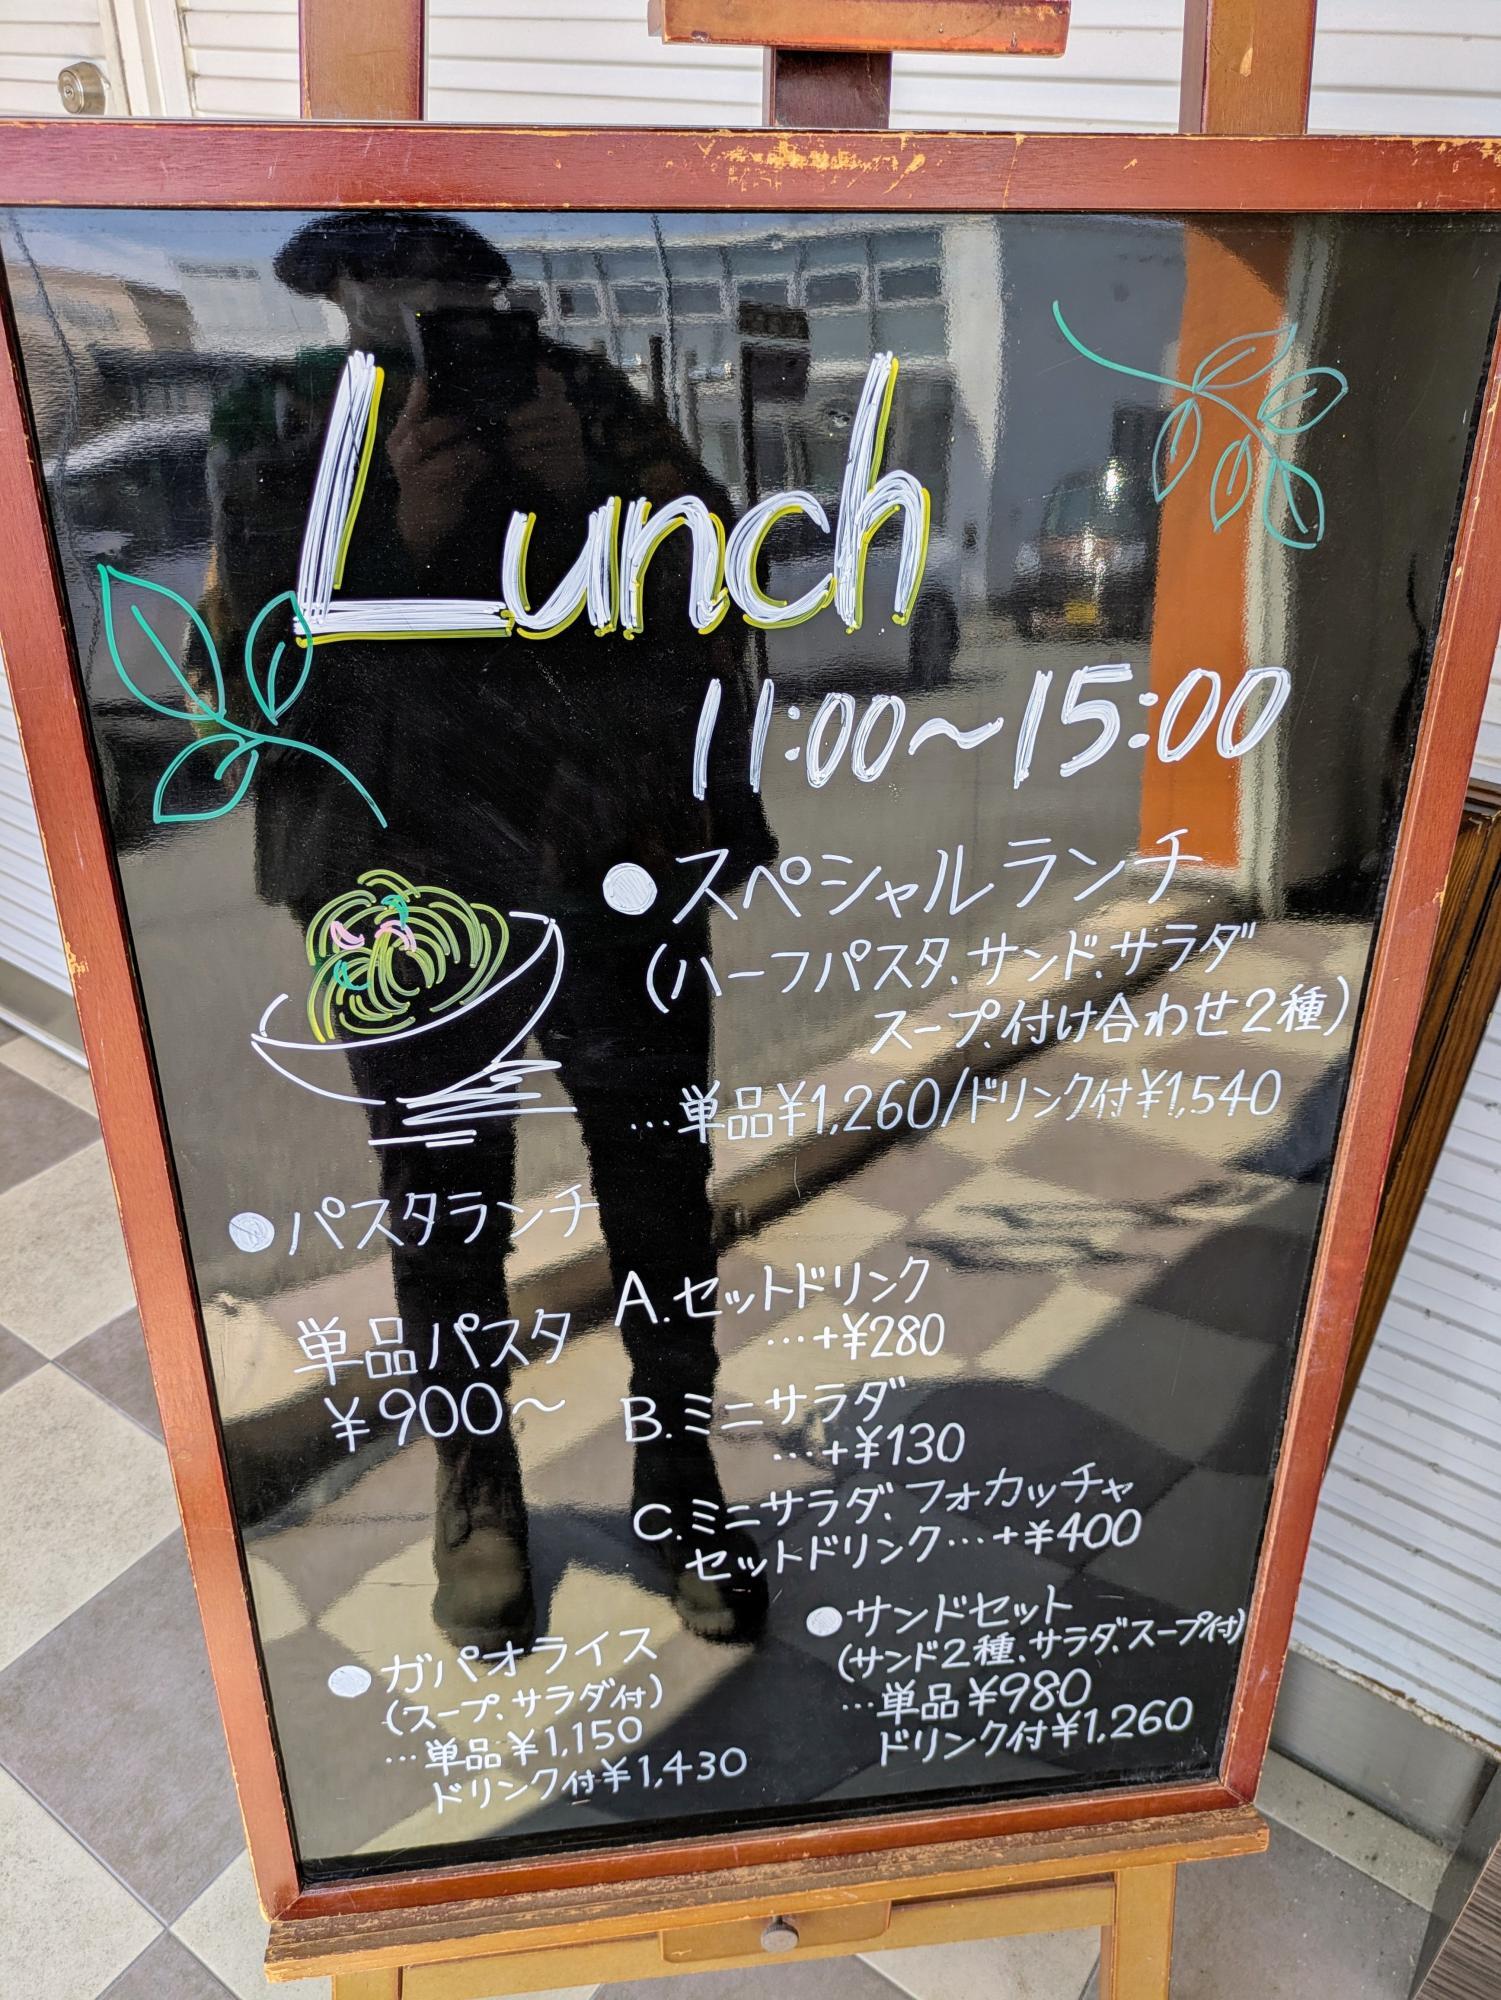 Lunch
11:00～15:00
●スペシャルランチ
(ハーフパスタ、サンド、サラダ
スープ、付け合わせ2種)
…単品¥1,260/ドリンク付¥1,540
●パスタランチ
単品パスタ
¥900～
A.セットドリンク
…+¥280
B.ミニサラダ
…+¥130
C.ミニサラダ、フォカッチャ
セットドリンク…+¥400
●ガパオライス
(スープ、サラダ付)
…単品¥1,150
ドリンク付¥1,430
●サンドセット
(サンド2種、サラダ、スープ付)
…単品¥980
ドリンク付¥1,260